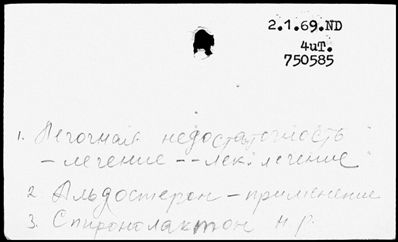 2.1.69.ND
4uT.
750585
1. Легочная недостаточность
– лечение -- лек. лечение
2. Альдостерон – применение
3. Спиронолактон н р.